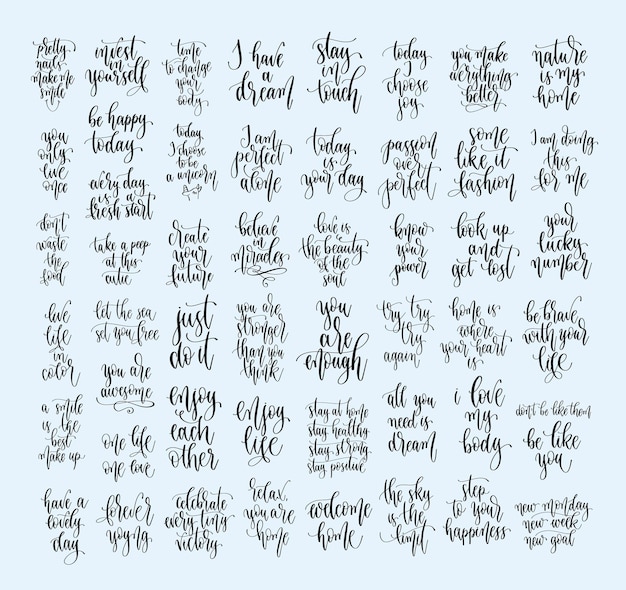 pretty
nails
make me
smile
invest
in
yourself
time
to change
your
body
I have
a
dream
stay
in
touch
today
I
choose
joy
you make
everything
better
nature
is my
home
be happy
today
you
only
live
once
every day
is a
fresh start
today
I choose
to be
a unicorn
I am
perfect
alone
today
is
your day
passion
over
perfect
some
like it
fashion
I am doing
this
for me
don't
waste
the
food
take a peep
at this
cutie
create
your
future
believe
in
miracles
love is
the beauty
of the
soul
know
your
power
look up
and
get lost
your
lucky
number
live
life
in
color
let the sea
set you free
just
do it
you are
stronger
than you
think
you
are
enough
try try
try
again
home is
where
your heart
is
be brave
with your
life
you are
awesome
a smile
is the
best
make up
one life
one love
enjoy
each
other
enjoy
life
stay at home
stay healthy
stay strong
stay positive
all you
need is
dream
i love
my
body
don't be like them
be like
you
have a
lovely
day
forever
young
celebrate
every tiny
victory
relax,
you are
home
welcome
home
the sky
is the
limit
step
to your
happiness
new monday
new week
new goal